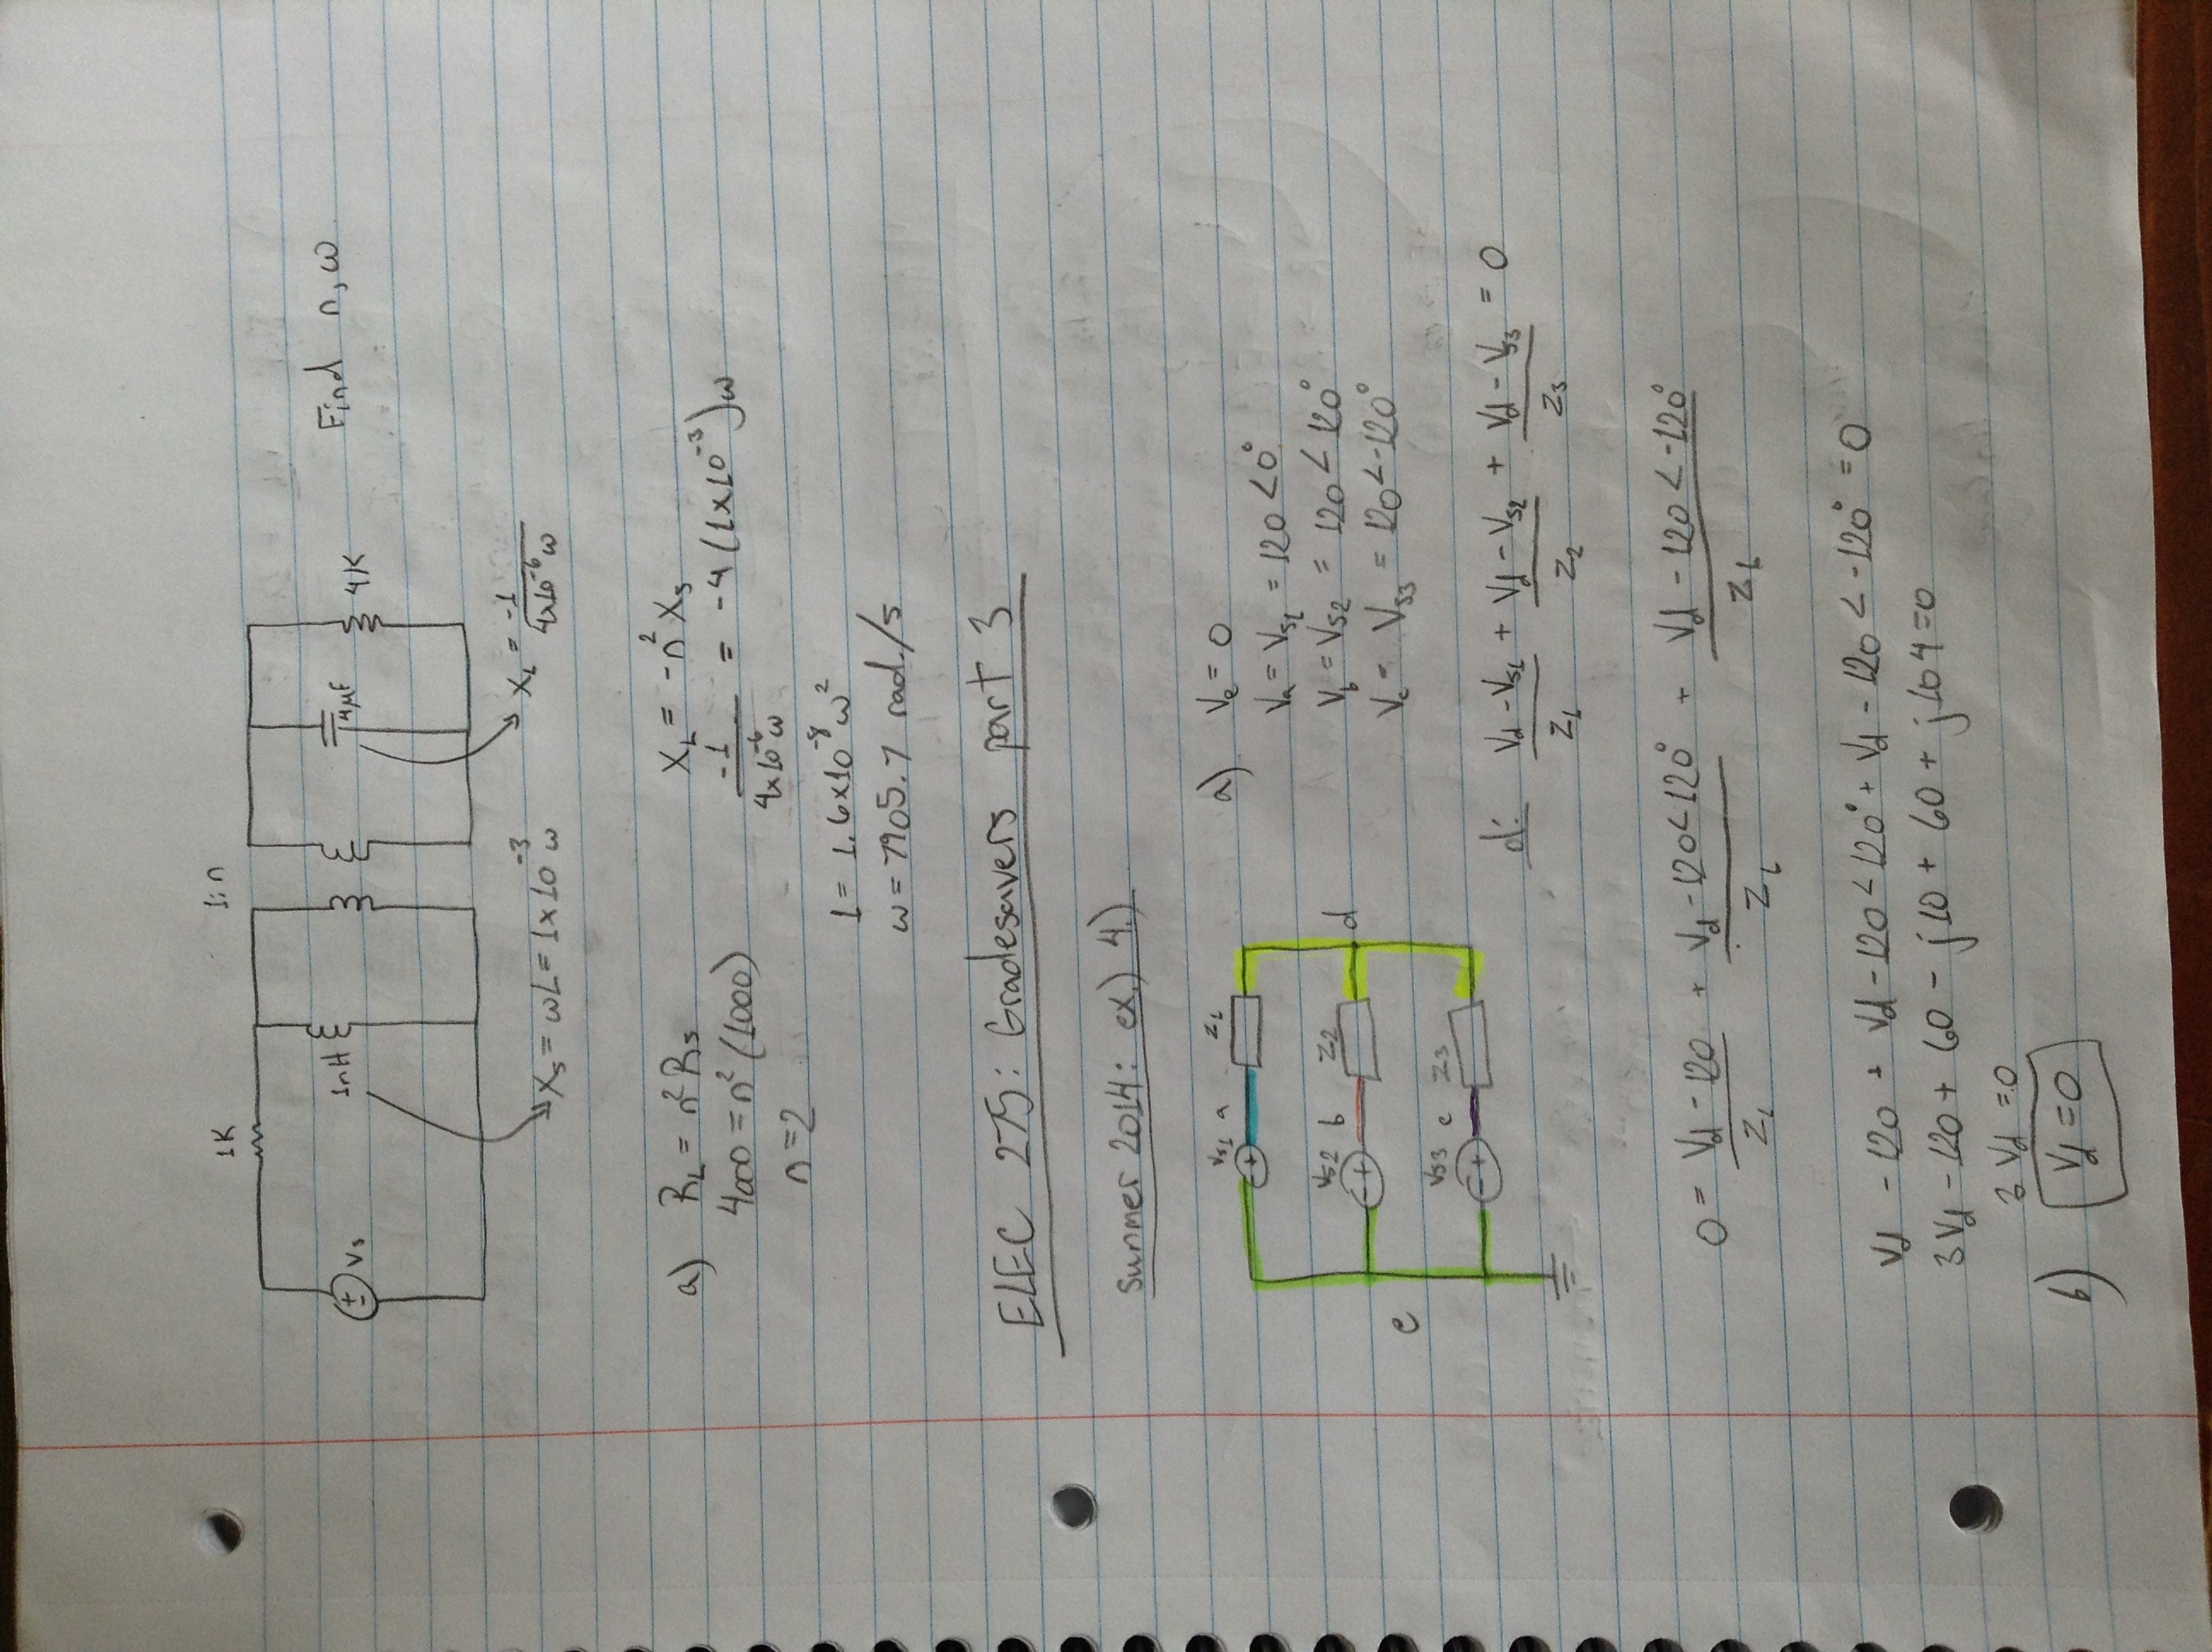 1K
1:n
Vs
1mH
4μF
4K
Find n, ω
Xs = ωL = 1x10^-3 ω
XL = -1 / 4x10^-6 ω
a) RL = n² Rs
4000 = n² (1000)
n = 2
XL = -n² Xs
-1 / 4x10^-6 ω = -4 (1x10^-3) ω
1 = 1.6x10^-8 ω²
ω = 7905.7 rad./s
ELEC 275: Gradesavers part 3
Summer 2014: ex.) 4.)
Vs1 a Z1
Vs2 b Z2 d
e
Vs3 c Z3
a) Ve = 0
Va = Vs1 = 120 < 0°
Vb = Vs2 = 120 < 120°
Vc = Vs3 = 120 < -120°
d: Vd - Vs1 / Z1 + Vd - Vs2 / Z2 + Vd - Vs3 / Z3 = 0
0 = Vd - 120 / Z1 + Vd - 120 < 120° / Z1 + Vd - 120 < -120° / Z1
Vd - 120 + Vd - 120 < 120° + Vd - 120 < -120° = 0
3Vd - 120 + 60 - j10 + 60 + j104 = 0
3 Vd = 0
b) Vd = 0